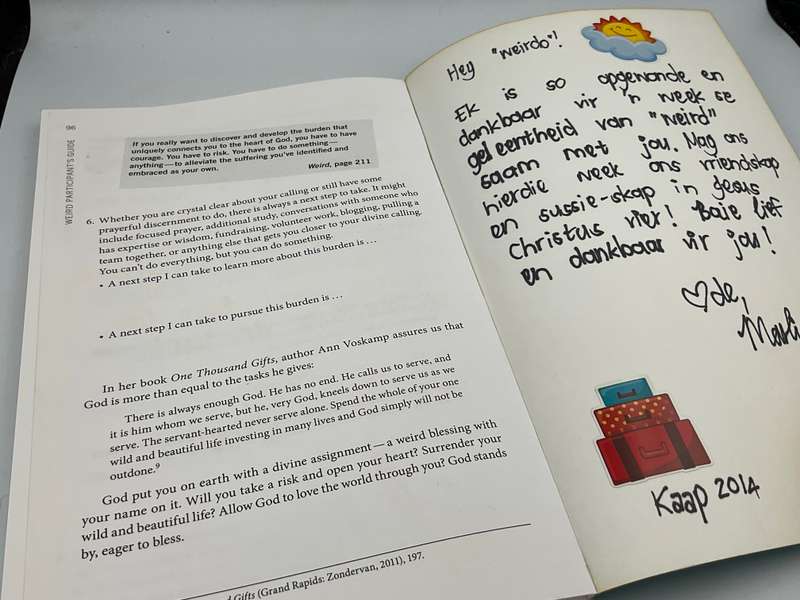 96
WEIRD PARTICIPANT'S GUIDE
If you really want to discover and develop the burden that
uniquely connects you to the heart of God, you have to have
courage. You have to risk. You have to do something—
anything—to alleviate the suffering you've identified and
embraced as your own.
Weird, page 211
6. Whether you are crystal clear about your calling or still have some
prayerful discernment to do, there is always a next step to take. It might
include focused prayer, additional study, conversations with someone who
has expertise or wisdom, fundraising, volunteer work, blogging, pulling a
team together, or anything else that gets you closer to your divine calling.
You can't do everything, but you can do something.
• A next step I can take to learn more about this burden is ...
• A next step I can take to pursue this burden is ...
In her book One Thousand Gifts, author Ann Voskamp assures us that
God is more than equal to the tasks he gives:
There is always enough God. He has no end. He calls us to serve, and
it is him whom we serve, but he, very God, kneels down to serve us as we
serve. The servant-hearted never serve alone. Spend the whole of your one
wild and beautiful life investing in many lives and God simply will not be
outdone.9
God put you on earth with a divine assignment—a weird blessing with
your name on it. Will you take a risk and open your heart? Surrender your
wild and beautiful life? Allow God to love the world through you? God stands
by, eager to bless.
Gifts (Grand Rapids: Zondervan, 2011), 197.
Hey "weirdo"!
Ek is so opgewonde en
dankbaar vir 'n week se
geleentheid van "weird"
saam met jou. Mag ons
hierdie week ons vriendskap
en sussie-skap in Jesus
Christus vier! Baie lief
en dankbaar vir jou!
♡de,
Kaap 2014